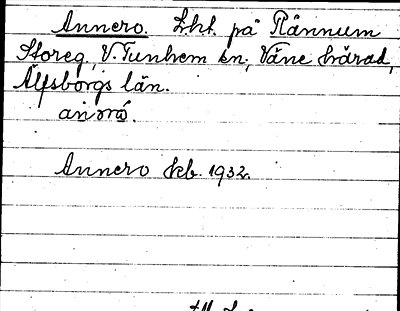 Annero. Lht. på Rännum
Storeg, V. Tunhem sn, Väne härad,
Älfsborgs län.
Annero Jkb. 1932.